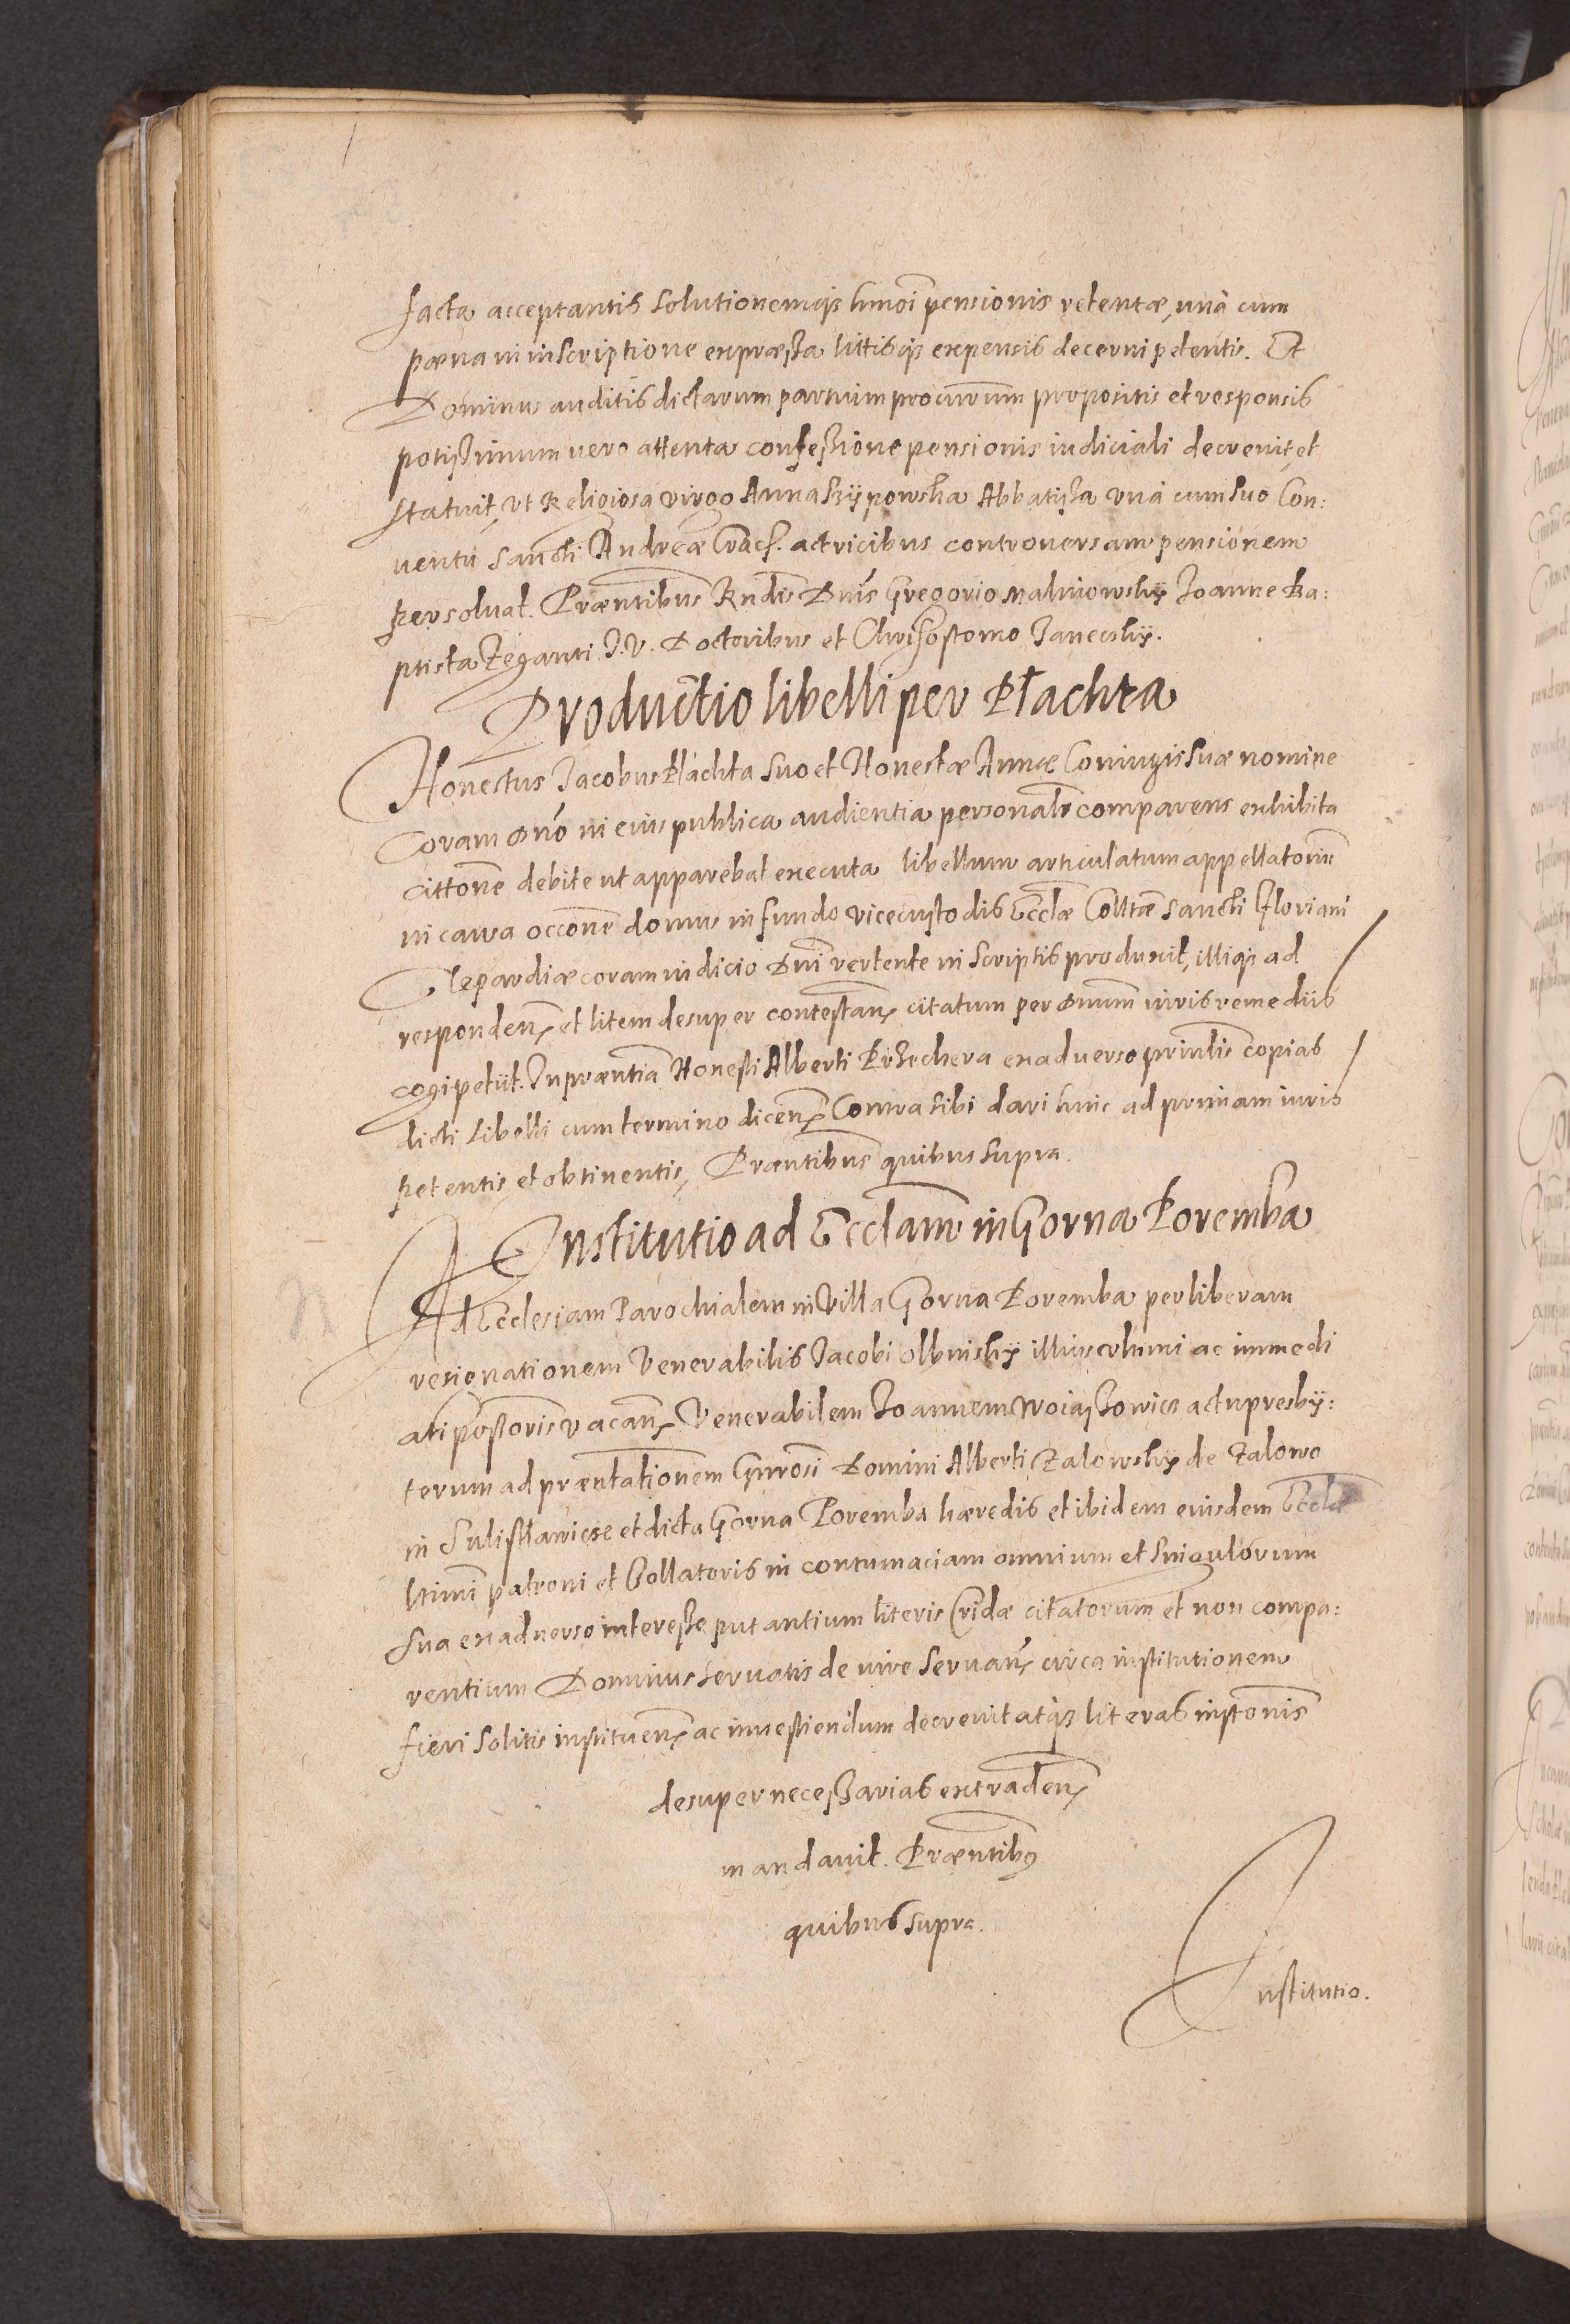 facta acceptantis solutionemq҃ hmoi pensionis retentæ, unà cum
pœna in inscriptione expræssa littisq҃ expensis decerni petentis. Et
Dominus auditis dictarum partium procurum propositis et responsis
potissimum vero attenta confessione pensionis iudiciali decrevit et
statuit, vt Religiosa virgo Anna Rypowska Abbatissa vnà cum suo Con:
ventu sancti Andreæ Crac. actricibus controversam pensionem
persolvat. Præntibus Rndis Dnis Gregorio Malinowsky Joanne Ba:
ptista Zeganti J.V. Doctoribus et Chrisostomo Janecsky.
Productio libelli per Płachta
Honestus Jacobus Płachta suo et Honestæ Annæ Coniugis suæ nomine
Coram Dno in eius publica audientia personalr comparens exhibita
cittone debite ut apparebat executa libellum articulatum appellatorium
in causa occone domus in fundo vicecustodis Ecclæ Colltæ Sancti Floriani
Clepardiæ coram iudicio Dni vertente in scriptis produxit, illiq҃ ad
respondens et litem desuper contestans citatum per Dnum iuris remediis
cogi petiit. In præntia Honesti Alberti Przechera ex adverso printis copias
dicti libelli cum termino dicens Contra sibi dari hinc ad primam iuris
petentis et obtinentis, Præntibus quibus supra.
Institutio ad Ecclam in Gorna Poremba
Ad Ecclesiam Parochialem in Villa Gorna Poremba per liberam
resignationem Venerabilis Jacobi Olbinsky illius vltimi ac immedi
ati possessoris vacans Venerabilem Joannem Woiaszowicz actu presby:
terum ad præntationem Gnrosi Domini Alberti Zalowsky de Zalowo
in Sulisławicze et dicta Gorna Poremba hæredis et ibidem eiusdem Ecclæ
ltimi patroni et Collatoris in contumaciam omnium et singulorum
sua ex adverso interesse putantium literis Cridæ citatorum et non compa:
rentium Dominus servatis de iure servans circa institutionem
fieri solitis instituens ac investiendum decrevit atq҃ literas insttonis
desuper necessarias extradens
mandavit. Præntibus
quibus supra.
Institutio.